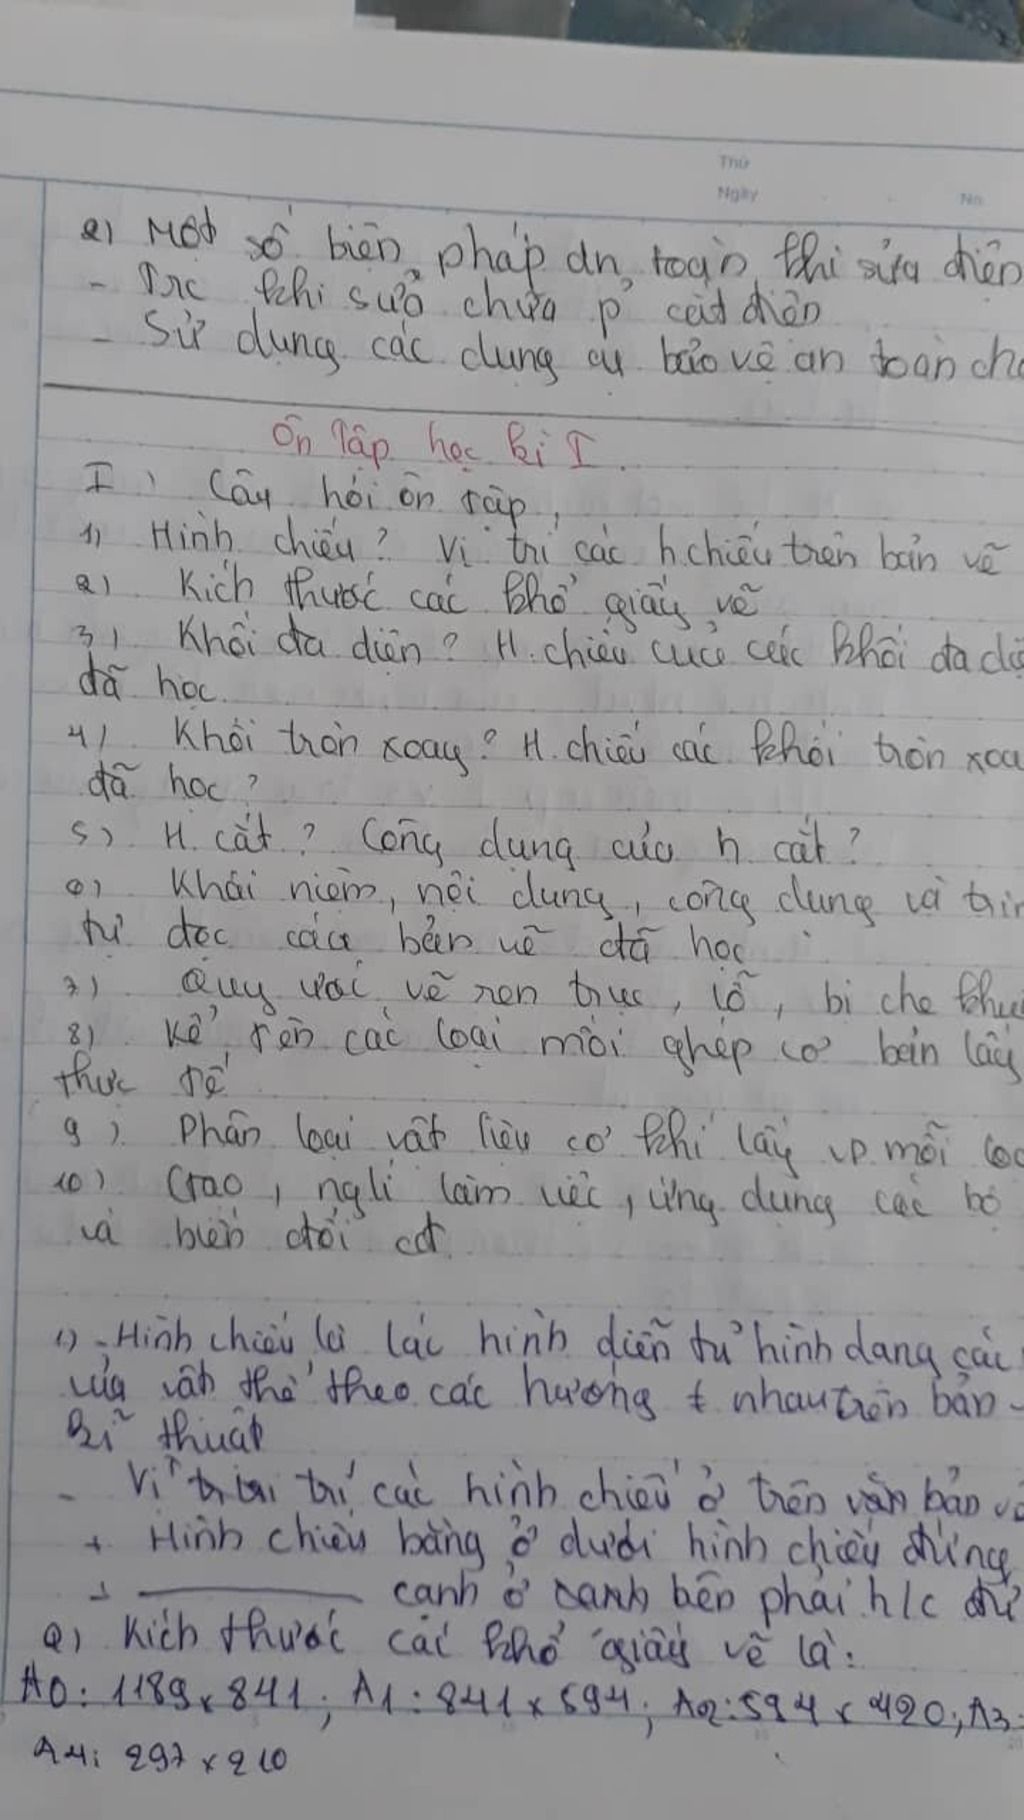 Thứ
Ngày No
2) Một số biện pháp an toàn khi sửa điện
- Trc khi sửa chữa p' cắt điện
- Sử dụng các dụng cụ bảo vệ an toàn ch
Ôn tập học kì I.
I) Câu hỏi ôn tập,
1) Hình chiếu? Vị trí các h.chiếu trên bản vẽ
2) Kích thước các khổ giấy vẽ
3) Khối đa diện? H.chiếu của các khối đa di
đã học.
4) Khối tròn xoay? H.chiếu các khối tròn xoa
đã học?
5) H.cắt? Công dụng của h cắt?
6) Khái niệm, nội dung, công dụng và trìn
tự đọc các bản vẽ đã học
7) Quy ước vẽ ren trục, lỗ, bị che khu
8) Kể tên các loại mối ghép cơ bản lấy
thực tế
9) Phân loại vật liệu cơ khí lấy VD mỗi loạ
10) Ctạo, nglí làm việc, ứng dụng các bộ
và biến đổi cđ.
1) - Hình chiếu là các hình diễn tả hình dạng các
của vật thể theo các hướng ≠ nhau trên bản
kĩ thuật
- Vị trí các hình chiếu ở trên văn bản vẽ
+ Hình chiếu bằng ở dưới hình chiếu đứng
+ ——— cạnh ở cạnh bên phải h/c đứ
2) Kích thước các khổ giấy vẽ là:
A0: 1189 x 841; A1: 841 x 594; A2: 594 x 420; A3:
A4: 297 x 210